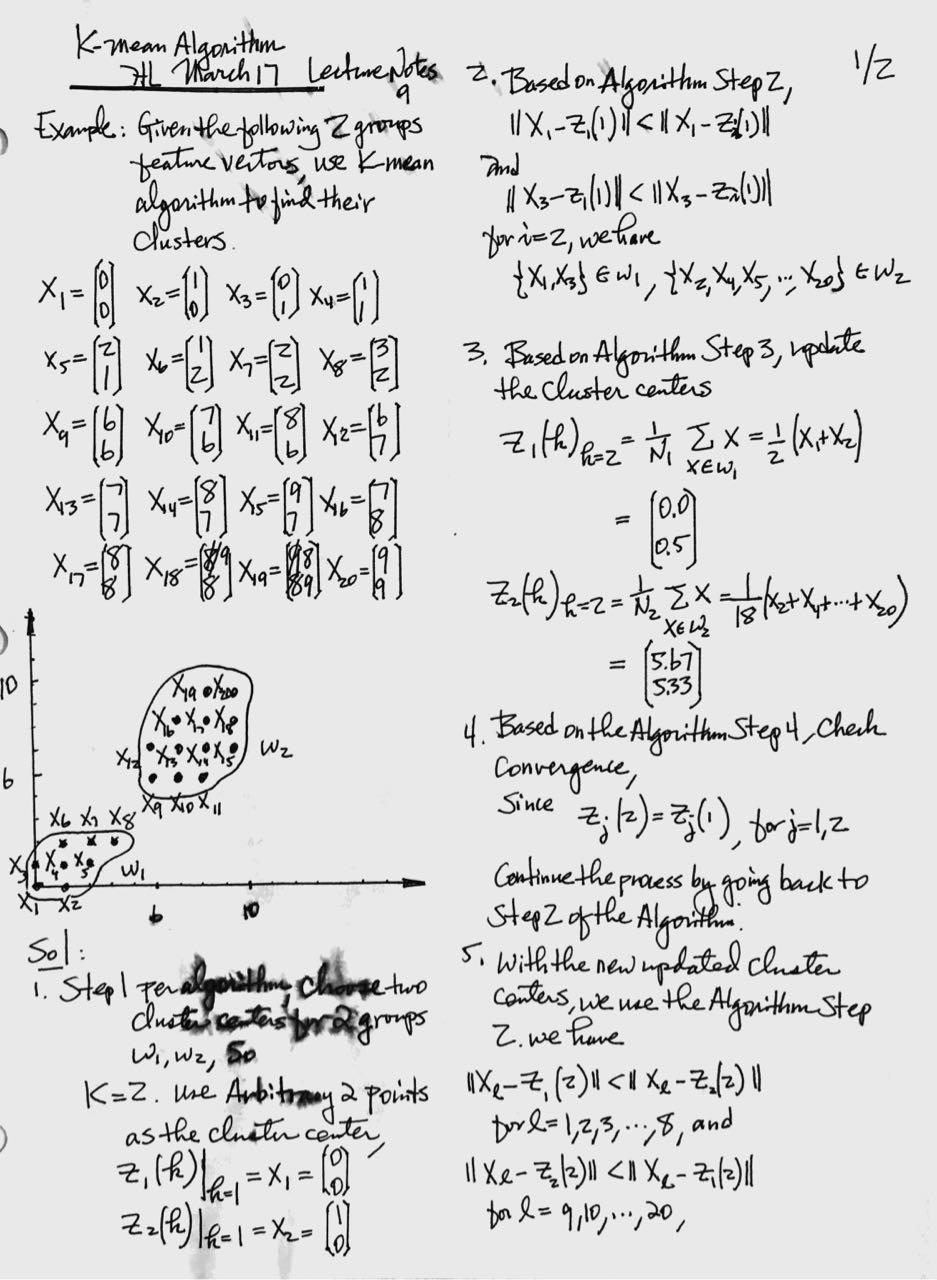 K-mean Algorithm
HL March 17 Lecture Notes
9
Example: Given the following 2 groups
feature vectors, use K-mean
algorithm to find their
Clusters.
X₁=(0 0) X₂=(1 0) X₃=(0 1) X₄=(1 1)
X₅=(2 1) X₆=(1 2) X₇=(2 2) X₈=(3 2)
X₉=(6 6) X₁₀=(7 6) X₁₁=(8 6) X₁₂=(6 7)
X₁₃=(7 7) X₁₄=(8 7) X₁₅=(9 7) X₁₆=(7 8)
X₁₇=(8 8) X₁₈=(9 8) X₁₉=(8 9) X₂₀=(9 9)
10
X₁₉ X₂₀
X₁₆ X₁₇ X₁₈
X₁₂ X₁₃ X₁₄ X₁₅ W₂
6
X₉ X₁₀ X₁₁
X₆ X₇ X₈
X₃ X₄ X₅ W₁
X₁ X₂ 6 10
Sol:
1. Step 1 per algorithm, choose two
cluster centers for 2 groups
W₁, W₂, So
K=2. use Arbitrary 2 points
as the cluster center,
Z₁(k)|k=1 = X₁ = (0 0)
Z₂(k)|k=1 = X₂ = (1 0)
1/2
2. Based on Algorithm Step 2,
||X₁-Z₁(1)|| < ||X₁-Zᵢ(1)||
and
||X₃-Z₁(1)|| < ||X₃-Zᵢ(1)||
for i=2, we have
{X₁,X₃} ∈ W₁, {X₂,X₄,X₅,..., X₂₀} ∈ W₂
3. Based on Algorithm Step 3, update
the Cluster centers
Z₁(k)k=2 = 1/N₁ Σ X∈W₁ X = 1/2 (X₁+X₂)
= (0.0 0.5)
Z₂(k)k=2 = 1/N₂ Σ X∈W₂ X = 1/18 (X₂+X₄+...+X₂₀)
= (5.67 5.33)
4. Based on the Algorithm Step 4, Check
Convergence,
Since Zⱼ(2)=Zⱼ(1), for j=1,2
Continue the process by going back to
Step 2 of the Algorithm.
5. With the new updated cluster
centers, we use the Algorithm Step
2. we have
||Xₗ-Z₁(2)|| < ||Xₗ-Z₂(2)||
for l=1,2,3,...,8, and
||Xₗ-Z₂(2)|| < ||Xₗ-Z₁(2)||
for l= 9,10,...,20,